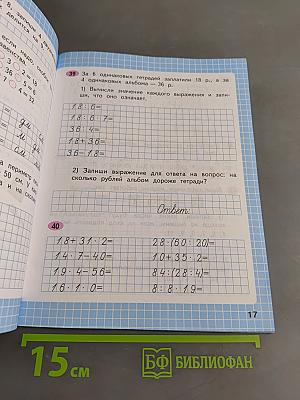 39 За 6 одинаковых тетрадей заплатили 18 р., а за
4 одинаковых альбома — 36 р.
1) Вычисли значение каждого выражения и запи-
ши, что оно означает.
18:6=
18:6·7=
36:4=
18+36=
36-18=
2) Запиши выражение для ответа на вопрос: на
сколько рублей альбом дороже тетради?
Ответ:
40
18+31·2= 28·(60:20)=
14·7-40= 10+35·2=
19·4-56= 84:(28:4)=
16·1·0= 8:8·19=
17
15 см БФ БИБЛИОФАН